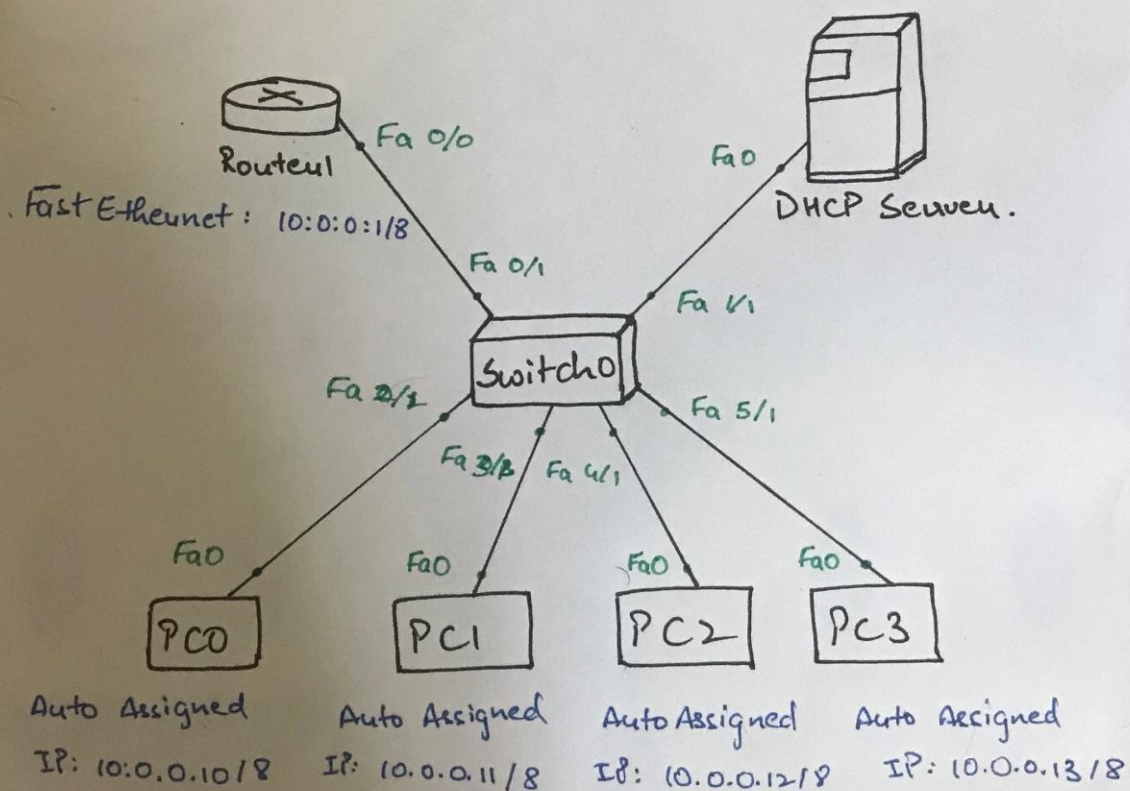 Fa 0/0
Router1
Fast Ethernet: 10:0:0:1/8
Fa0
DHCP Server.
Fa 0/1
Fa 1/1
Switch0
Fa 2/1
Fa 5/1
Fa 4/1
Fa0
Fa0
Fa0
Fa0
PC0
PC1
PC2
PC3
Auto Assigned
IP: 10:0.0.10/8
Auto Assigned
IP: 10.0.0.11/8
Auto Assigned
IP: 10.0.0.12/8
Auto Assigned
IP: 10.0.0.13/8